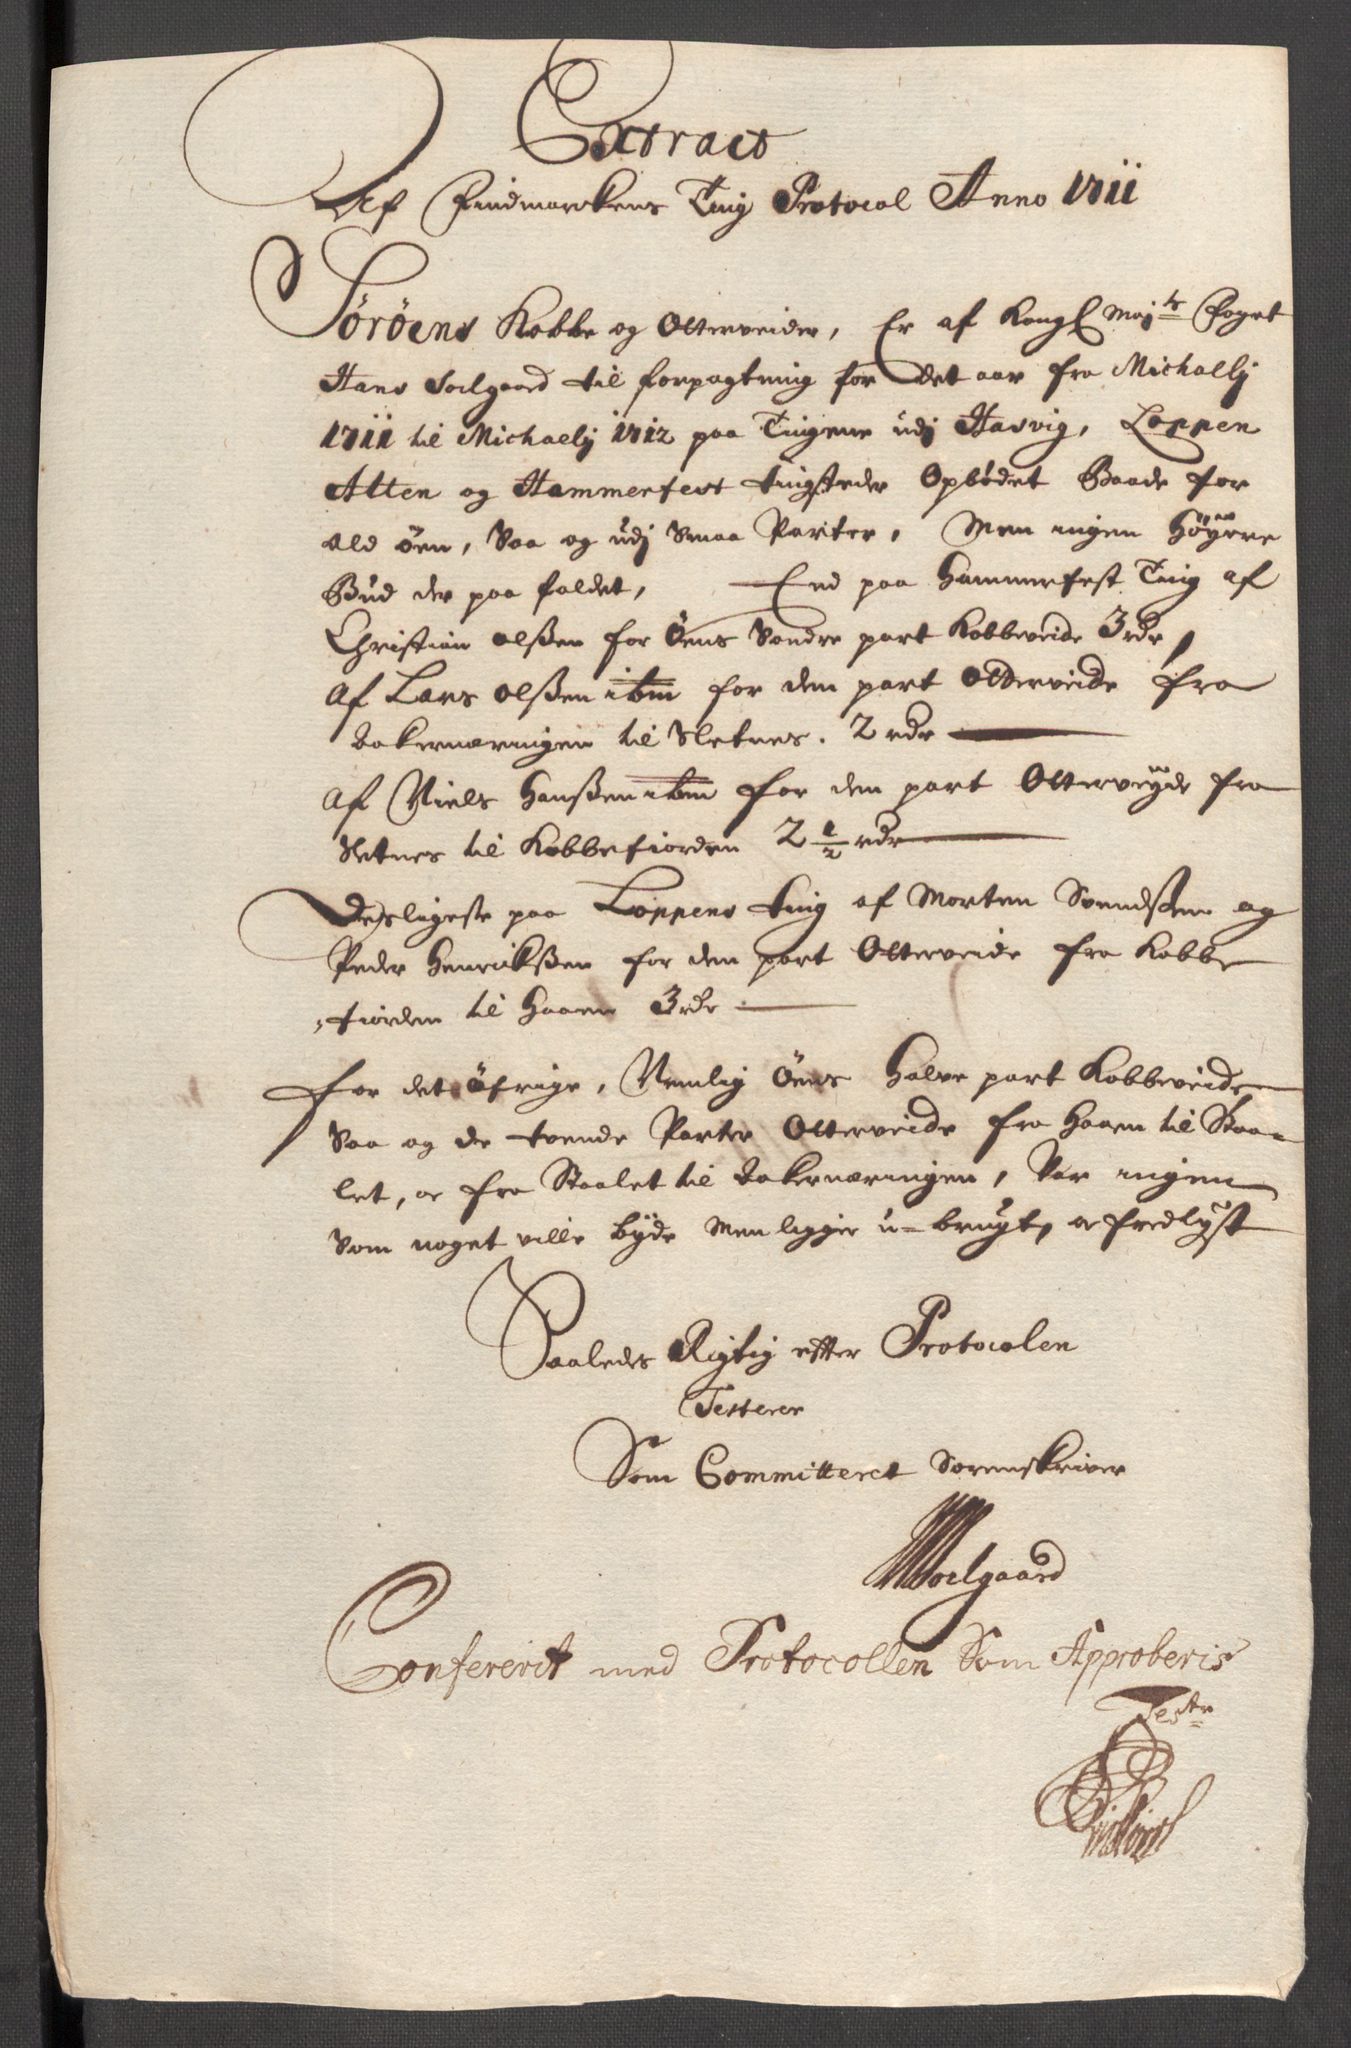 Extract
Af Findmarckens Ting Protocol Anno 1711
Sørøens Kobbe og Otterveider, Er af Kongl May:ts Foget
Hans Soelgaard til forpagtning for det aar fra Michaelij
1711 til Michaelij 1712 paa Tingene udj Hasvig, Loppen
Alten og Hammerfest tingsteder Opbødet Baade for
ald øen, Saa og udj Smaa Parter, Men ingen høyere
Bud der paa faldet, End paa Hammerfest Ting af
Christian olßen for Øens Søndre part Kobbeveide 3 rdr,
Af Lars olßen ibm for den part Otterveide fra
Bakernæringen til Sletnes. 2 rdr
Af Niels Hanßen ibm for den part Otterveyde fra
Sletnes til Kobbefiorden 2 1/2 rdr
Desligeste paa Loppens ting af Morten Svendßen og
Peder Henrikßen for den part Otterveide fra Kobbe
fiorden til Haaen 3 rdr
For det øfrige, Nemlig Øens Halve part Kobbeveide
Saa og de tvende Parter Otterveide fra Haaen til Staa-
let, oc fra Staalet til Bakernæringen, Var ingen
Som noget ville byde Men ligger u-brugt, oc fredlyst
Saaledes Rigtig efter Protocolen
Testerer
Som Committeret Sorenskriver
Soelgaard
Confererit med Protocollen Som Approberis
Teste